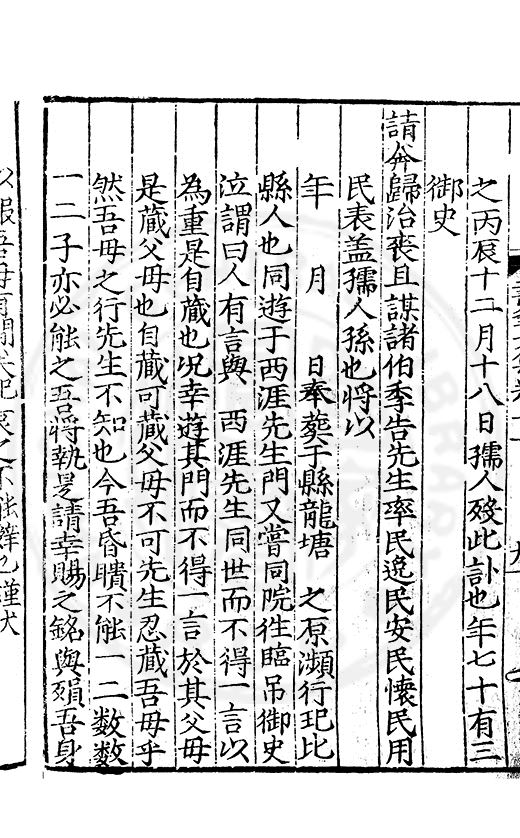 之丙辰十二月十八日孺人歿此訃也年七十有三
御史
請奔歸治喪且謀諸伯季告先生率民逸民安民懷民用
民表盖孺人孫也將以
年　月　日奉葬于縣龍塘　之原瀕行玘比
縣人也同遊于西涯先生門又嘗同院徃臨吊御史
泣謂曰人有言與　西涯先生同世而不得一言以
為重是自蔵也况幸遊其門而不得一言於其父毋
是蔵父毋也自蔵可蔵父毋不可先生忍蔵吾毋乎
然吾毋之行先生不知也今吾昏聵不能一二数数
一二子亦必能之吾將執是請幸賜之銘與殞吾身